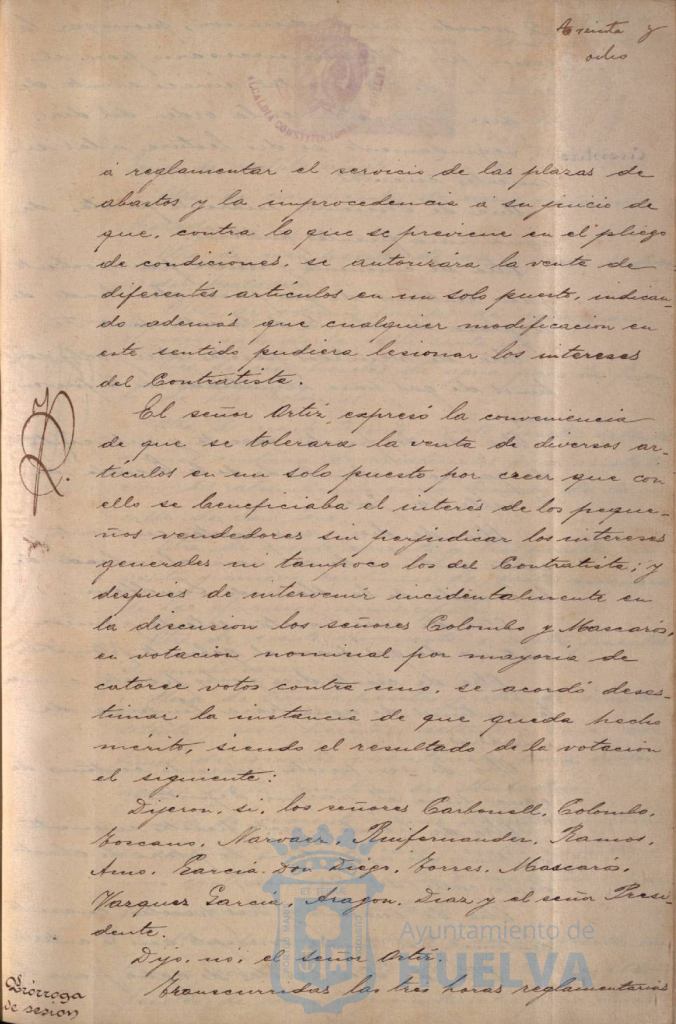 Treinta y
ocho
ALCALDIA CONSTITUCIONAL
á reglamentar el servicio de las plazas de
abastos y la improcedencia á su juicio de
que, contra lo que se previene en el pliego
de condiciones, se autorizára la venta de
diferentes artículos en un solo puesto, indican-
do además que cualquier modificacion en
este sentido pudiera lesionar los intereses
del Contratista.
El señor Ortiz, expresó la conveniencia
de que se tolerara la venta de diversos ar-
tículos en un solo puesto por creer que con
ello se beneficiaba el interés de los peque-
ños vendedores sin perjudicar los intereses
generales ni tampoco los del Contratista; y
después de intervenir incidentalmente en
la discusion los señores Colombo y Mascarós,
en votacion nominal por mayoría de
catorce votos contra uno, se acordó deses-
timar la instancia de que queda hecho
mérito, siendo el resultado de la votacion
el siguiente:
Dijeron, si, los señores Carbonell, Colombo,
Toscano, Narvaez, Ruifernandez, Ramos,
Amo, García Don Diego, Torres, Mascarós,
Vazquez García, Aragon, Diaz y el señor Presi-
dente.
Dijo, nó, el señor Ortiz.
Transcurridas las tres horas reglamentarias
Prórroga
de sesion
Ayuntamiento de
HUELVA